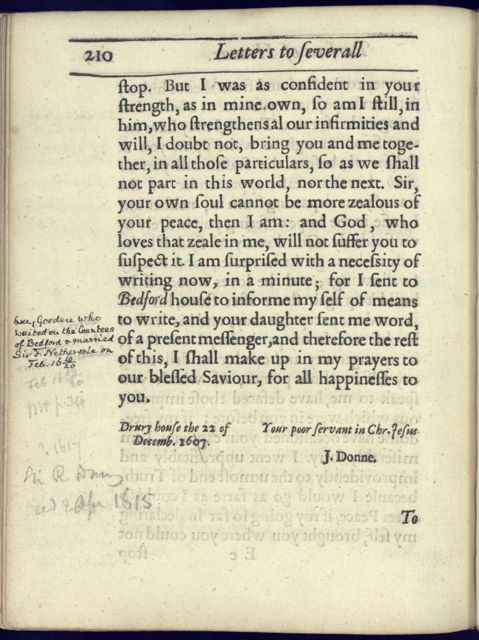 210 Letters to ſeverall
ſtop. But I was as confident in your
ſtrength, as in mine own, ſo am I ſtill, in
him, who ſtrengthens al our infirmities and
will, I doubt not, bring you and me toge-
ther, in all thoſe particulars, ſo as we ſhall
not part in this world, nor the next. Sir,
your own ſoul cannot be more zealous of
your peace, then I am: and God, who
loves that zeale in me, will not ſuffer you to
ſuſpect it. I am ſurpriſed with a neceſſity of
writing now, in a minute; for I ſent to
Bedford houſe to informe my ſelf of means
to write, and your daughter ſent me word,
of a preſent meſſenger, and therefore the reſt
of this, I ſhall make up in my prayers to
our bleſſed Saviour, for all happineſſes to
you.
Drury houſe the 22 of
Decemb. 1607.
Your poor ſervant in Chr. Jeſus
J. Donne.
To
Lucy Goodere who
waited on the Countess
of Bedford & married
Sir F. Nethersole on
Feb. 16 19/20
Feb 16 19/20
1617
Sir R Drury
Apr 1615